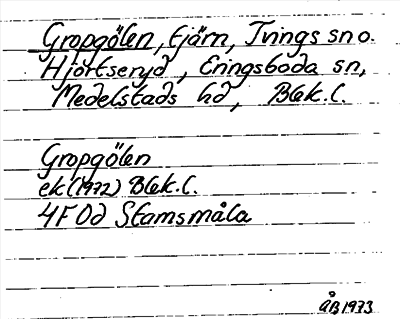 Gropgölen, tjärn, Tvings sn o.
Hjortseryd, Eringsboda sn,
Medelstads hd, Blek. l.
Gropgölen
ek (1972) Blek. l.
4F 0d Stamsmåla
ÅB 1973